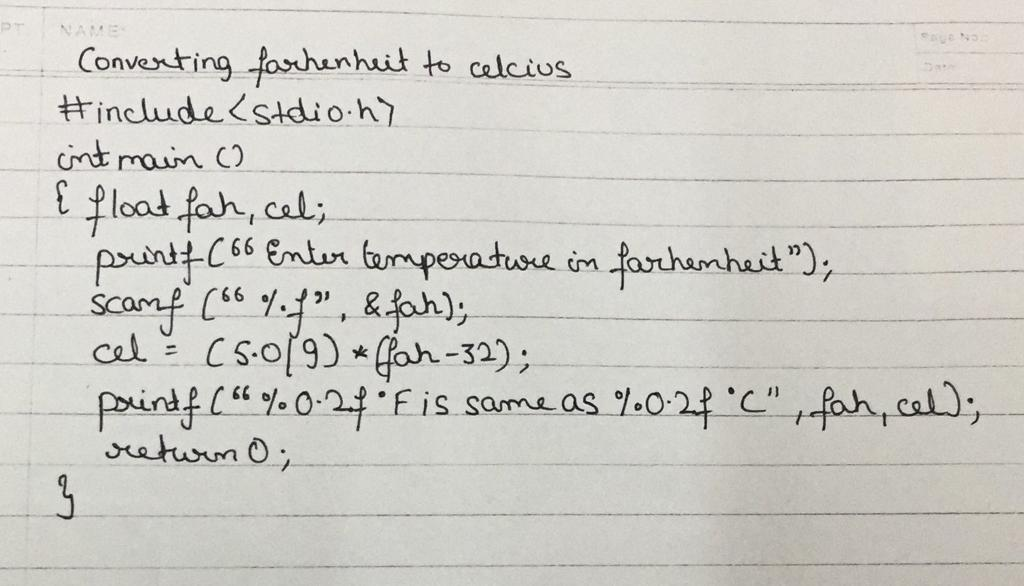 PT. NAME:
Page No.:
Date:
Converting farhenheit to celcius
#include<stdio.h>
int main ()
{ float fah, cel;
printf(“ Enter temperature in farhenheit”);
scanf (“ %f”, &fah);
cel = (5.0/9) * (fah-32);
printf (“ %0.2f °F is same as %0.2f °C", fah, cel);
return 0;
}